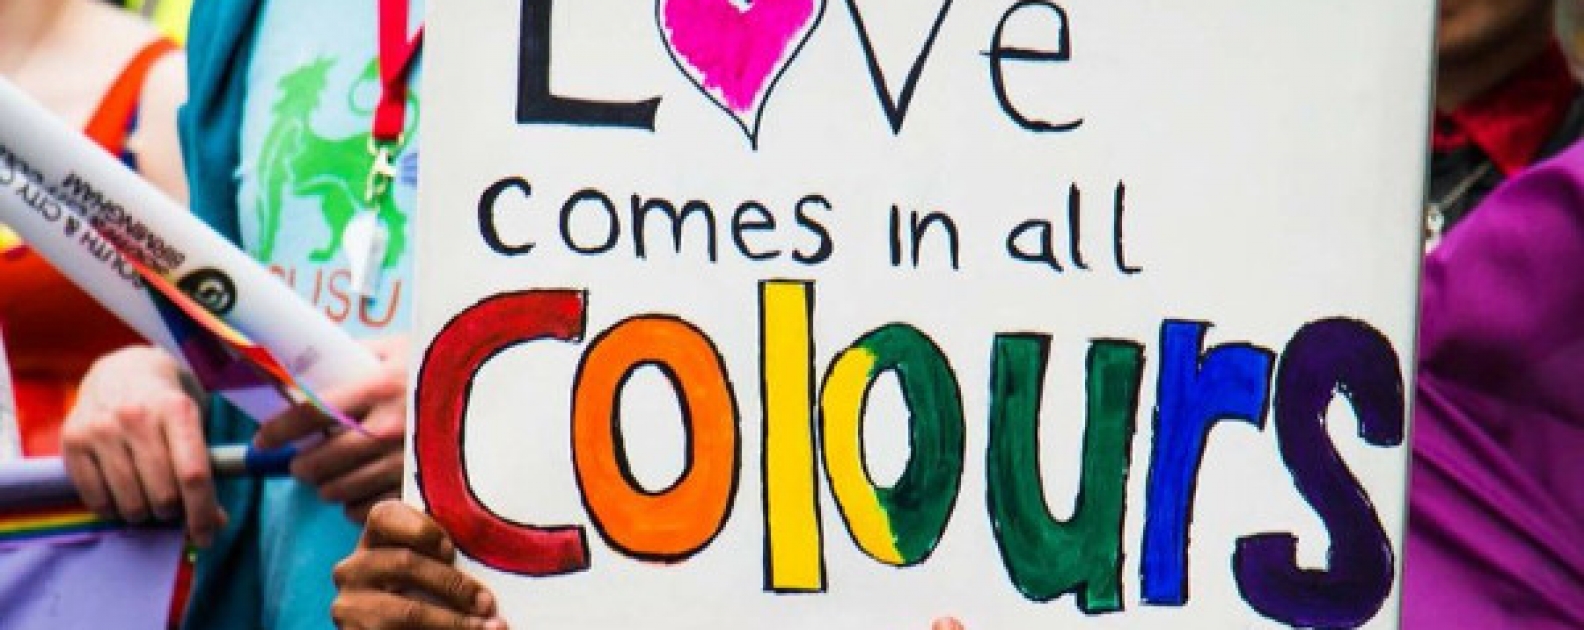 Love
comes in all
Colours
SOUTH & CITY
BIRMINGHAM